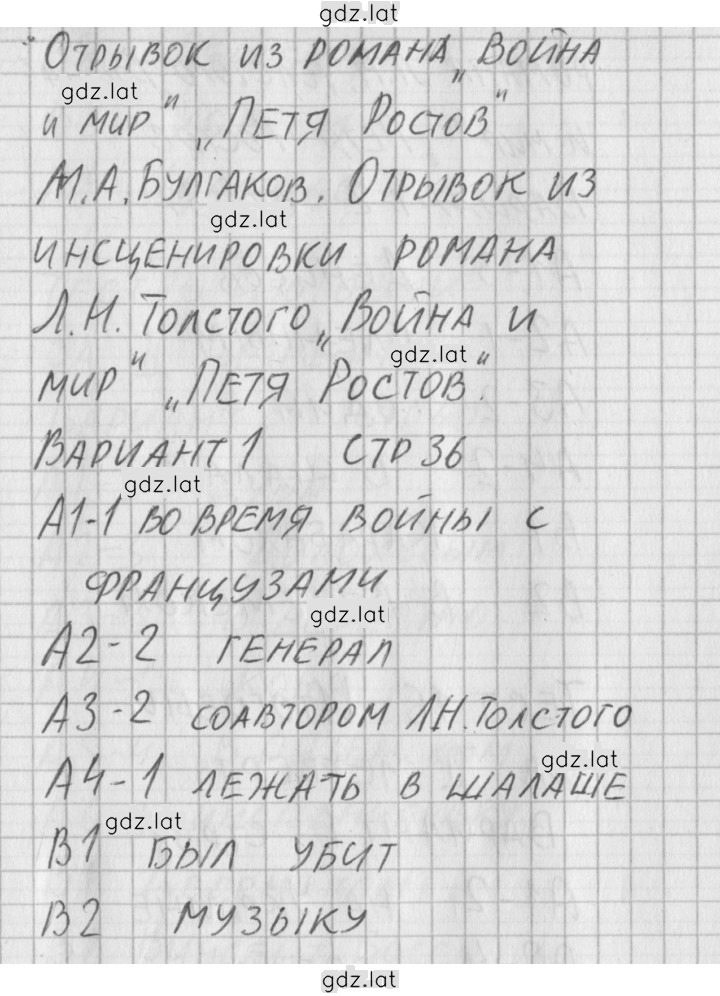 gdz.lat
Отрывок из романа „Война
gdz.lat
и мир" „Петя Ростов"
М.А.Булгаков. Отрывок из
gdz.lat
инсценировки романа
Л.Н.Толстого „Война и
gdz.lat
мир" „Петя Ростов".
Вариант 1 стр 36
gdz.lat
А1-1 во время войны с
французами
gdz.lat
А2-2 генерал
А3-2 соавтором Л.Н.Толстого
gdz.lat
А4-1 лежать в шалаше
gdz.lat
В1 был убит
В2 музыку
gdz.lat